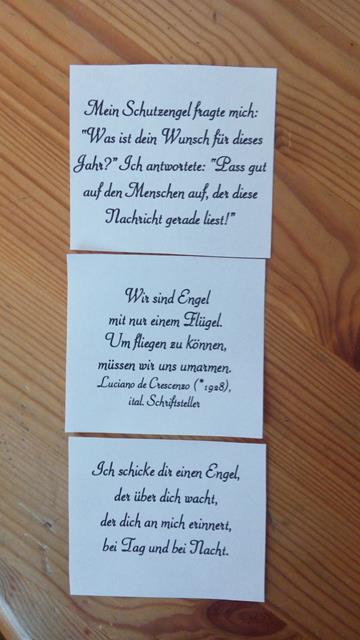 Mein Schutzengel fragte mich:
"Was ist dein Wunsch für dieses
Jahr?" Ich antwortete: "Pass gut
auf den Menschen auf, der diese
Nachricht gerade liest!"
Wir sind Engel
mit nur einem Flügel.
Um fliegen zu können,
müssen wir uns umarmen.
Luciano de Crescenzo (*1928),
ital. Schriftsteller
Ich schicke dir einen Engel,
der über dich wacht,
der dich an mich erinnert,
bei Tag und bei Nacht.